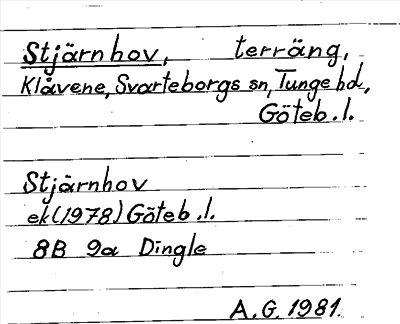 Stjärnhov, terräng,
Klåvene, Svarteborgs sn, Tunge hd,
Göteb. l.
Stjärnhov
ek (1978) Göteb. l.
8B 9a Dingle
A. G. 1981.